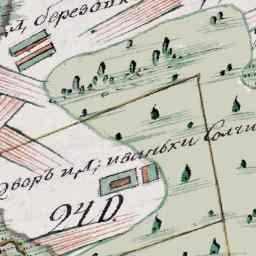 л, березовк
дворъ и л; иваньки Солчи
24 D.